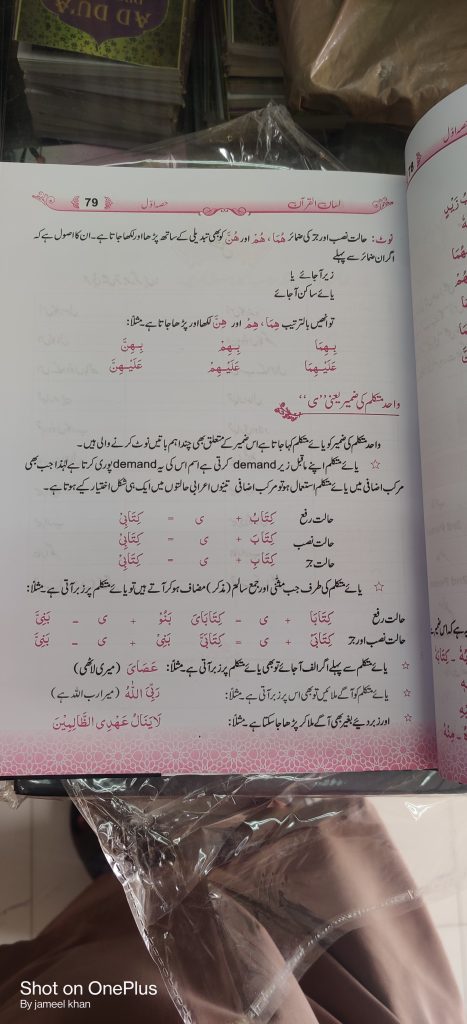 AD DU'A
79
حصہ اوّل
لسان القرآن
نوٹ: حالت نصب اور جرّ کی ضمائر هُمَا، هُمْ اور هُنَّ کو بھی تبدیلی کے ساتھ پڑھا اور لکھا جاتا ہے۔ ان کا اصول ہے کہ
اگر ان ضمائر سے پہلے
زیر آجائے یا
یائے ساکن آجائے
تو انھیں بالترتیب هِمَا، هِمْ اور هِنَّ لکھا اور پڑھا جاتا ہے مثلًا:
بِهِمَا بِهِمْ بِهِنَّ
عَلَيْهِمَا عَلَيْهِمْ عَلَيْهِنَّ
واحد متکلم کی ضمیر یعنی ’’ی‘‘
واحد متکلم کی ضمیر کو یائے متکلم کہا جاتا ہے اس ضمیر کے متعلق بھی چند اہم باتیں نوٹ کرنے والی ہیں۔
☆ یائے متکلم اپنے ماقبل زیر demand کرتی ہے اسم اس کی یہ demand پوری کرتا ہے لہٰذا جب بھی
مرکب اضافی میں یائے متکلم استعمال ہو تو مرکب اضافی تینوں اعرابی حالتوں میں ایک ہی شکل اختیار کیے ہوتا ہے۔
حالت رفع كِتَابُ + ی = كِتَابِیْ
حالت نصب كِتَابَ + ی = كِتَابِیْ
حالت جرّ كِتَابِ + ی = كِتَابِیْ
☆ یائے متکلم کی طرف جب مثنّٰی اور جمع سالم (مذکر) مضاف ہو کر آتے ہیں تو یائے متکلم پر زبر آتی ہے۔ مثلًا:
حالت رفع كِتَابَا + ی = كِتَابَایَ بَنُوْ + ی = بَنِیَّ
حالت نصب اور جرّ كِتَابَیْ + ی = كِتَابَیَّ بَنِیْ + ی = بَنِیَّ
☆ یائے متکلم سے پہلے اگر الف آجائے تو بھی یائے متکلم پر زبر آتی ہے۔ مثلًا: عَصَایَ (میری لاٹھی)
☆ یائے متکلم کو آگے ملائیں تو بھی اس پر زبر آتی ہے۔ مثلًا: رَبِّیَ اللّٰهُ (میرا رب اللہ ہے)
☆ اور زبر دیئے بغیر بھی آگے ملا کر پڑھا جا سکتا ہے۔ مثلًا: لَا يَنَالُ عَهْدِی الظَّالِمِيْنَ
Shot on OnePlus
By jameel khan